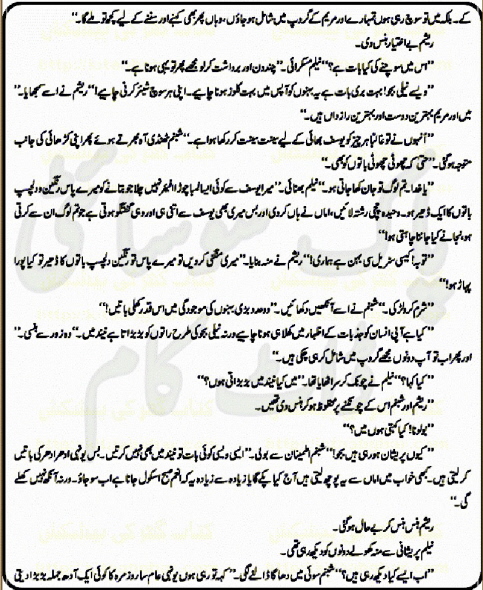 کے۔ بلکہ میں تو سوچ رہی ہوں تمہارے اور مریم کے گروپ میں شامل ہو جاؤں، وہاں پھر بھی کہنے اور سننے کے لیے کچھ تو ملے گا۔"
ریشم بے اختیار ہنس دی۔
"اس میں سوچنے کی کیا بات ہے؟" نیلم مسکرائی۔ "چند دن اور برداشت کر لو مجھے پھر تو یہی ہونا ہے۔"
"ویسے نیلی بجو! بہت بری بات ہے یہ بہنوں کو آپس میں بہت کلوز ہونا چاہیے۔ اپنی ہر سوچ شیئر کرنی چاہیے!" ریشم نے اسے سمجھایا۔ "
میں اور مریم بہترین دوست اور بہترین رازداں ہیں۔"
"انہوں نے تو غالباً ہر چیز کو یوسف بھائی کے لیے سینت سینت کر رکھا ہوا ہے۔" شبنم ٹھنڈی آہ بھرتے ہوئے پھر اپنی کڑھائی کی جانب
متوجہ ہو گئی۔ "حتیٰ کہ چھوٹی چھوٹی باتوں کو بھی۔"
"یا خدا! تم لوگ تو جان کھا جاتی ہو۔" نیلم بھنائی۔ "میرا یوسف سے کوئی ایسا لمبا چوڑا افیئر نہیں چلا جو بتانے کو میرے پاس رنگین و دلچسپ
باتوں کا ایک ڈھیر ہو۔ وحیدہ چچی رشتہ لائیں، اماں نے ہاں کر دی اور بس میری بھی یوسف سے اتنی ہی اور وہی گفتگو ہوتی ہے جو تم لوگ ان سے کرتی
ہو، نجانے کیا جاننا چاہتی ہو!"
"توبہ! کیسی سڑیل سی بہن ہے ہماری!" ریشم نے منہ بنایا۔ "میری منگنی کر دیں تو میرے پاس تو رنگین دلچسپ باتوں کا ڈھیر تو کیا پورا
پہاڑ ہو!"
"شرم کرو لڑکی۔" شبنم نے اسے آنکھیں دکھائیں۔ "دو عدد بڑی بہنوں کی موجودگی میں اس قدر کھلی باتیں!"
"کیا ہے آپی انسان کو جذبات کے اظہار میں کھلا ہی ہونا چاہیے ورنہ نیلی بجو کی طرح راتوں کو بڑبڑاتا ہے نیند میں۔" وہ زور سے ہنسی۔ "
اور پھر اب تو آپ دونوں مجھے گروپ میں شامل کر ہی چکی ہیں۔"
"کیا کہا؟" نیلم نے چونک کر سر اٹھایا تھا۔ "میں کیا نیند میں بڑبڑاتی ہوں؟"
ریشم اور شبنم اس کے چونکنے پر محظوظ ہو کر ہنس دی تھیں۔
"بولو نا! کیا کہتی ہوں میں؟"
"کیوں پریشان ہو رہی ہیں بجو!" شبنم اطمینان سے بولی۔ "ایسی ویسی کوئی بات تو نیند میں بھی نہیں کرتیں۔ بس یونہی ادھر ادھر کی باتیں
کر لیتی ہیں۔ کبھی خواب میں اماں سے یہ پوچھ لیتی ہیں آج کیا پکے گا یا زیادہ سے زیادہ یہ کہ انعم صبح اسکول جانا ہے اب سو جاؤ۔ ورنہ آنکھ نہیں کھلے
گی۔"
ریشم ہنس ہنس کر بے حال ہو گئی۔
نیلم پریشانی سے منہ کھولے دونوں کو دیکھ رہی تھی۔
"اب ایسے کیا دیکھ رہی ہیں؟" شبنم سوئی میں دھاگا ڈالنے لگی۔ "کہہ تو رہی ہوں یونہی عام سا روزمرہ کا کوئی ایک آدھ جملہ بڑبڑا دیتی